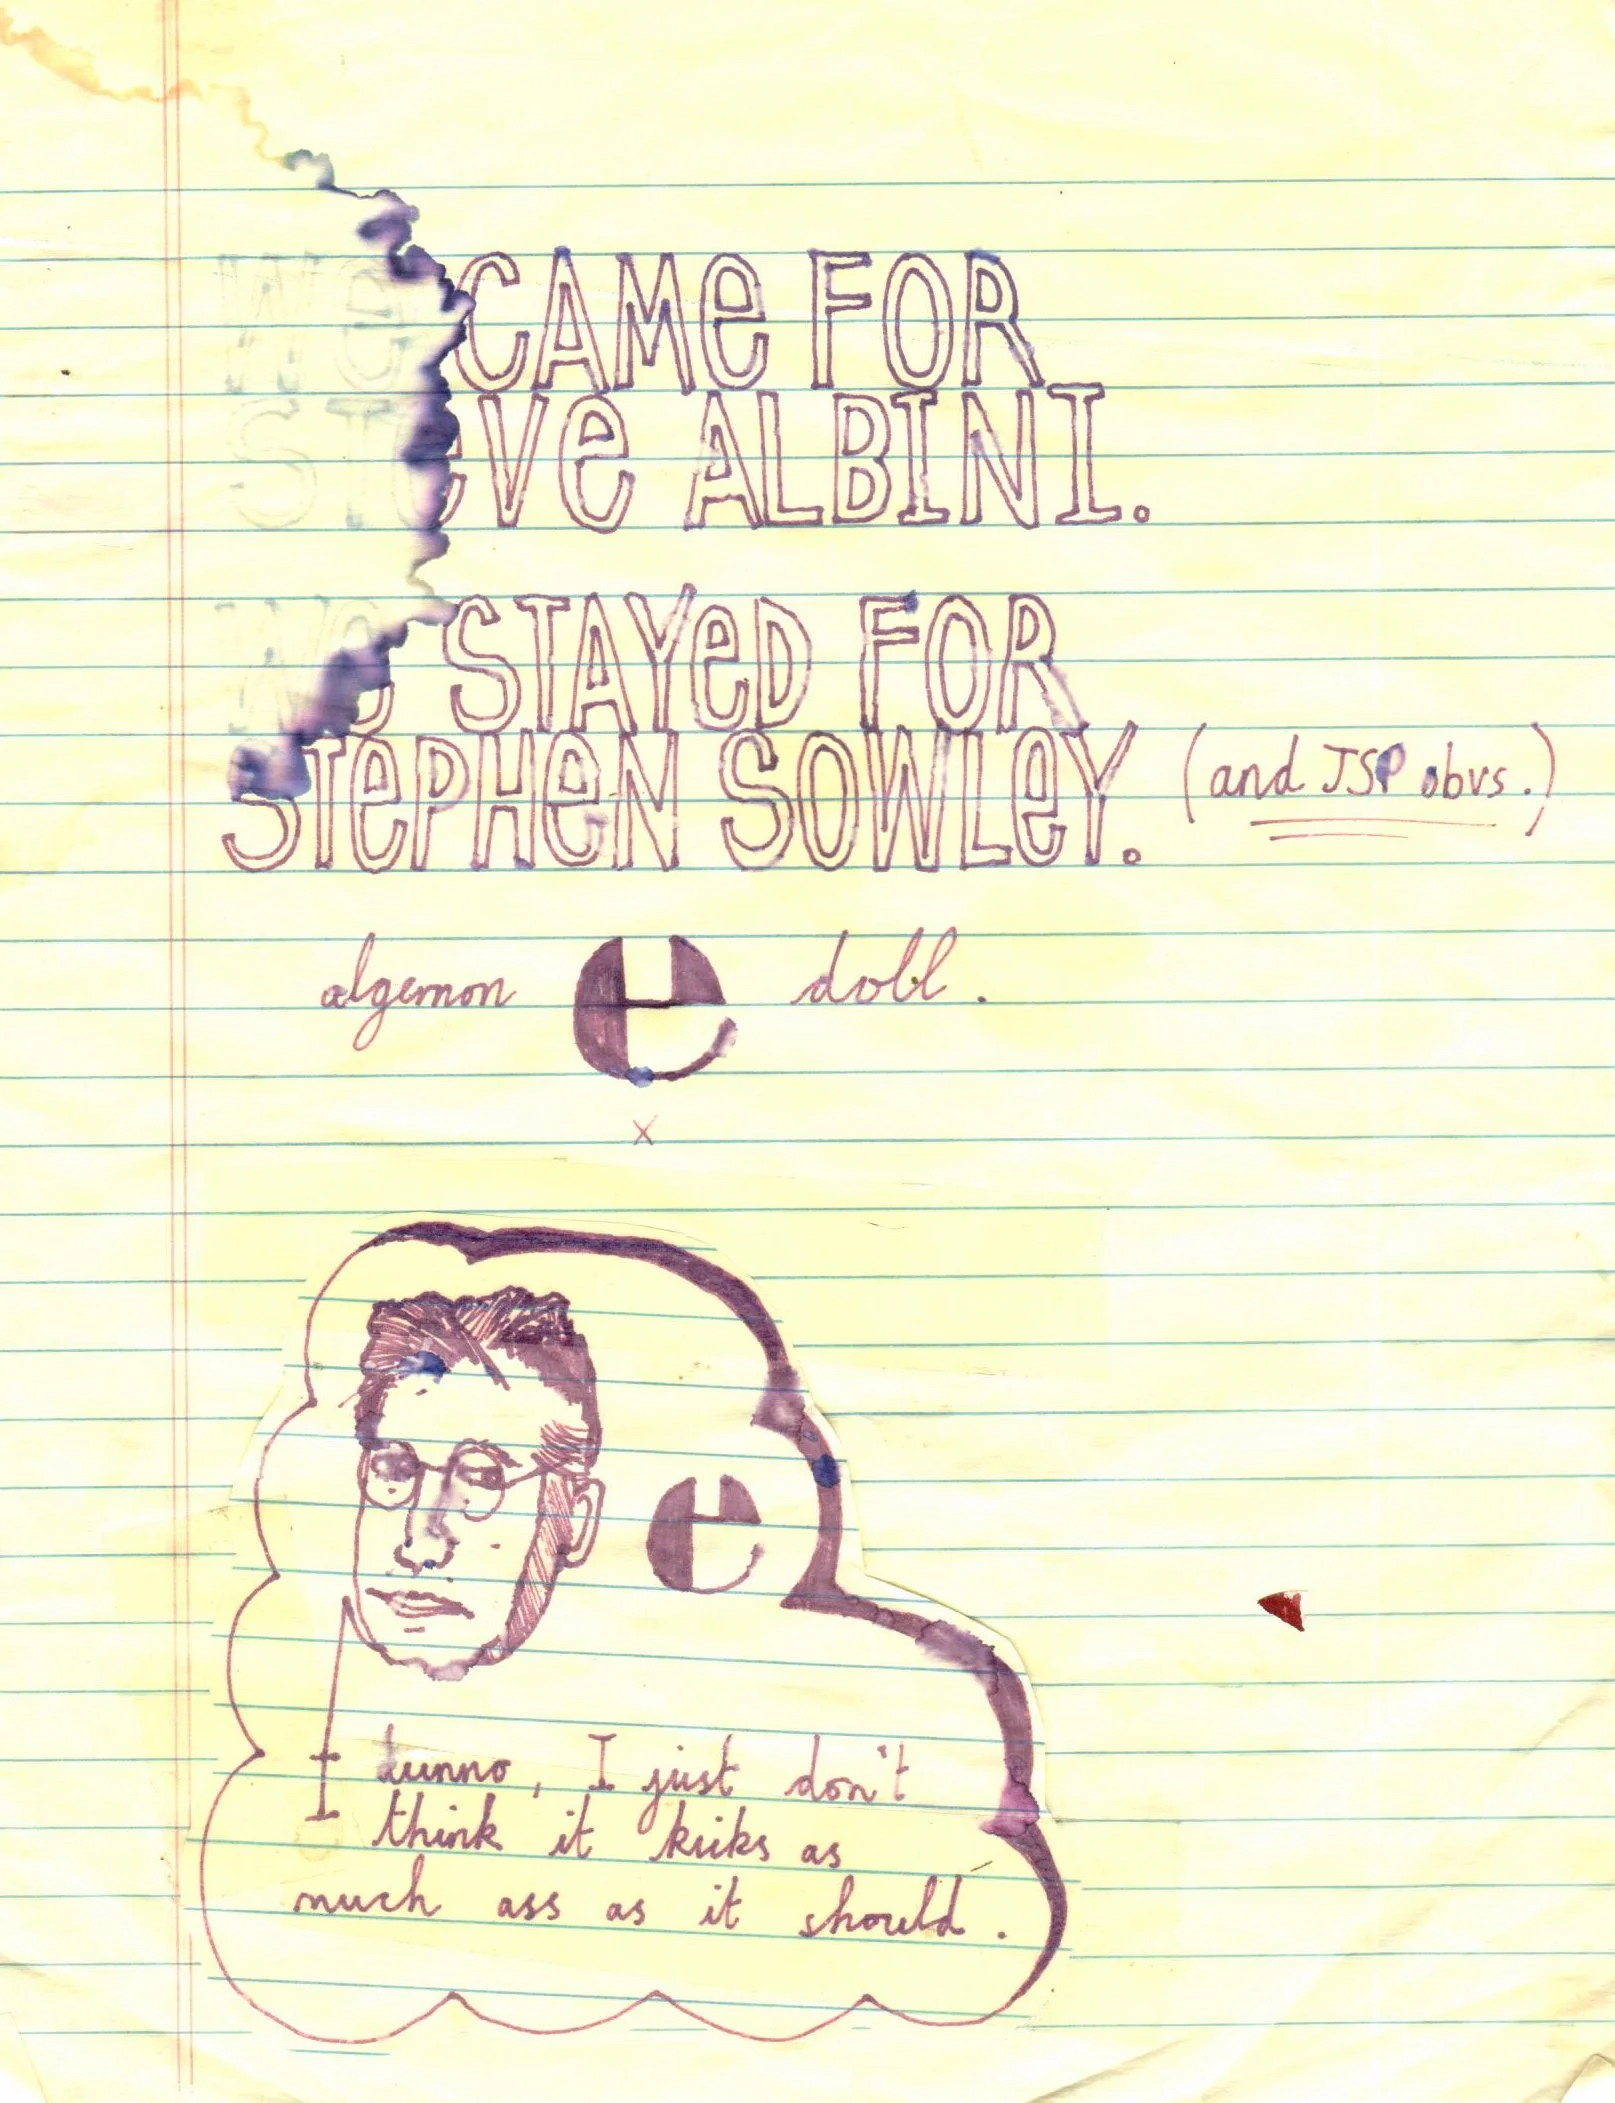 We CAMe FOR
STeVe ALBINI.
We STAYeD FOR
STePHeN SOWLeY. (and JSP obvs.)
algernon e doll.
x
e
I dunno, I just don't
think it kicks as
much ass as it should.